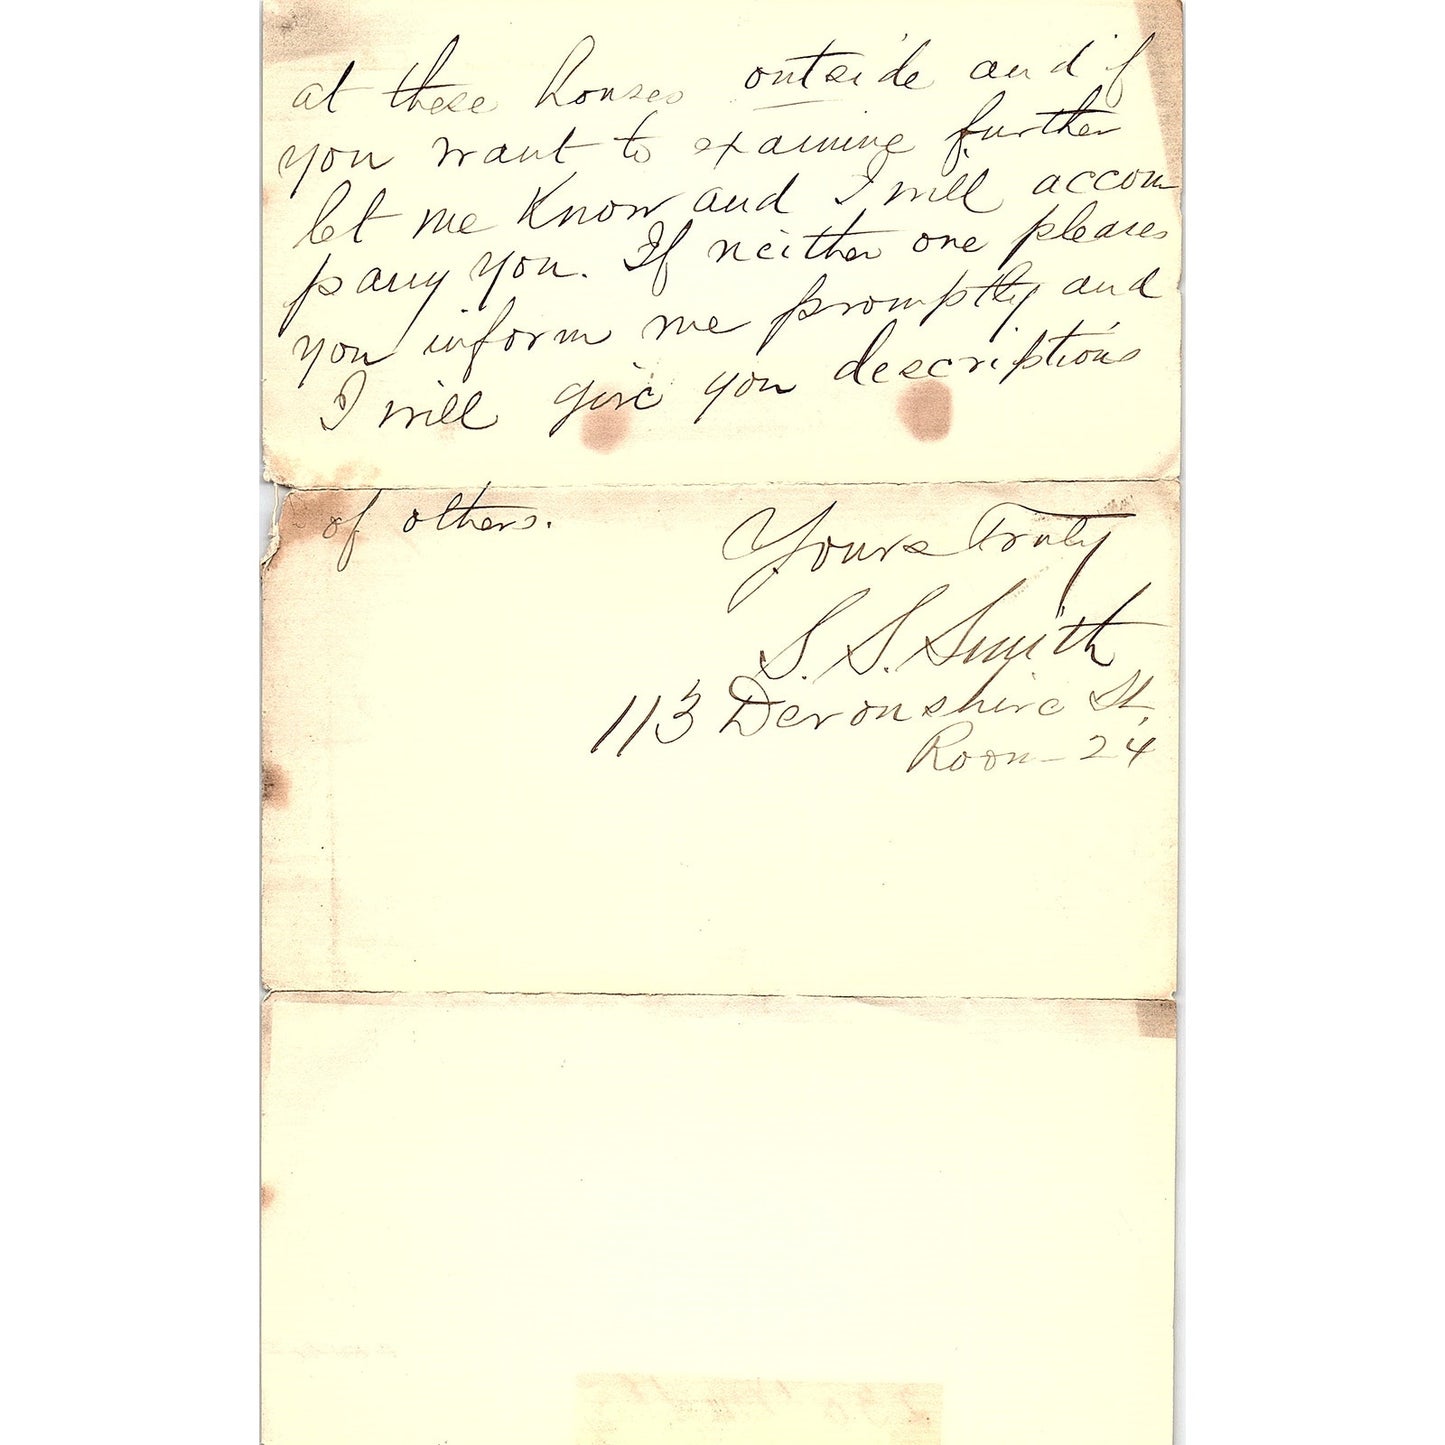 at these houses outside and if
you want to examine further
let me know and I will accom
pany you. If neither one pleases
you inform me promptly and
I will give you descriptions
of others.
Yours Truly
S. S. Smith
113 Devonshire St.
Room - 24